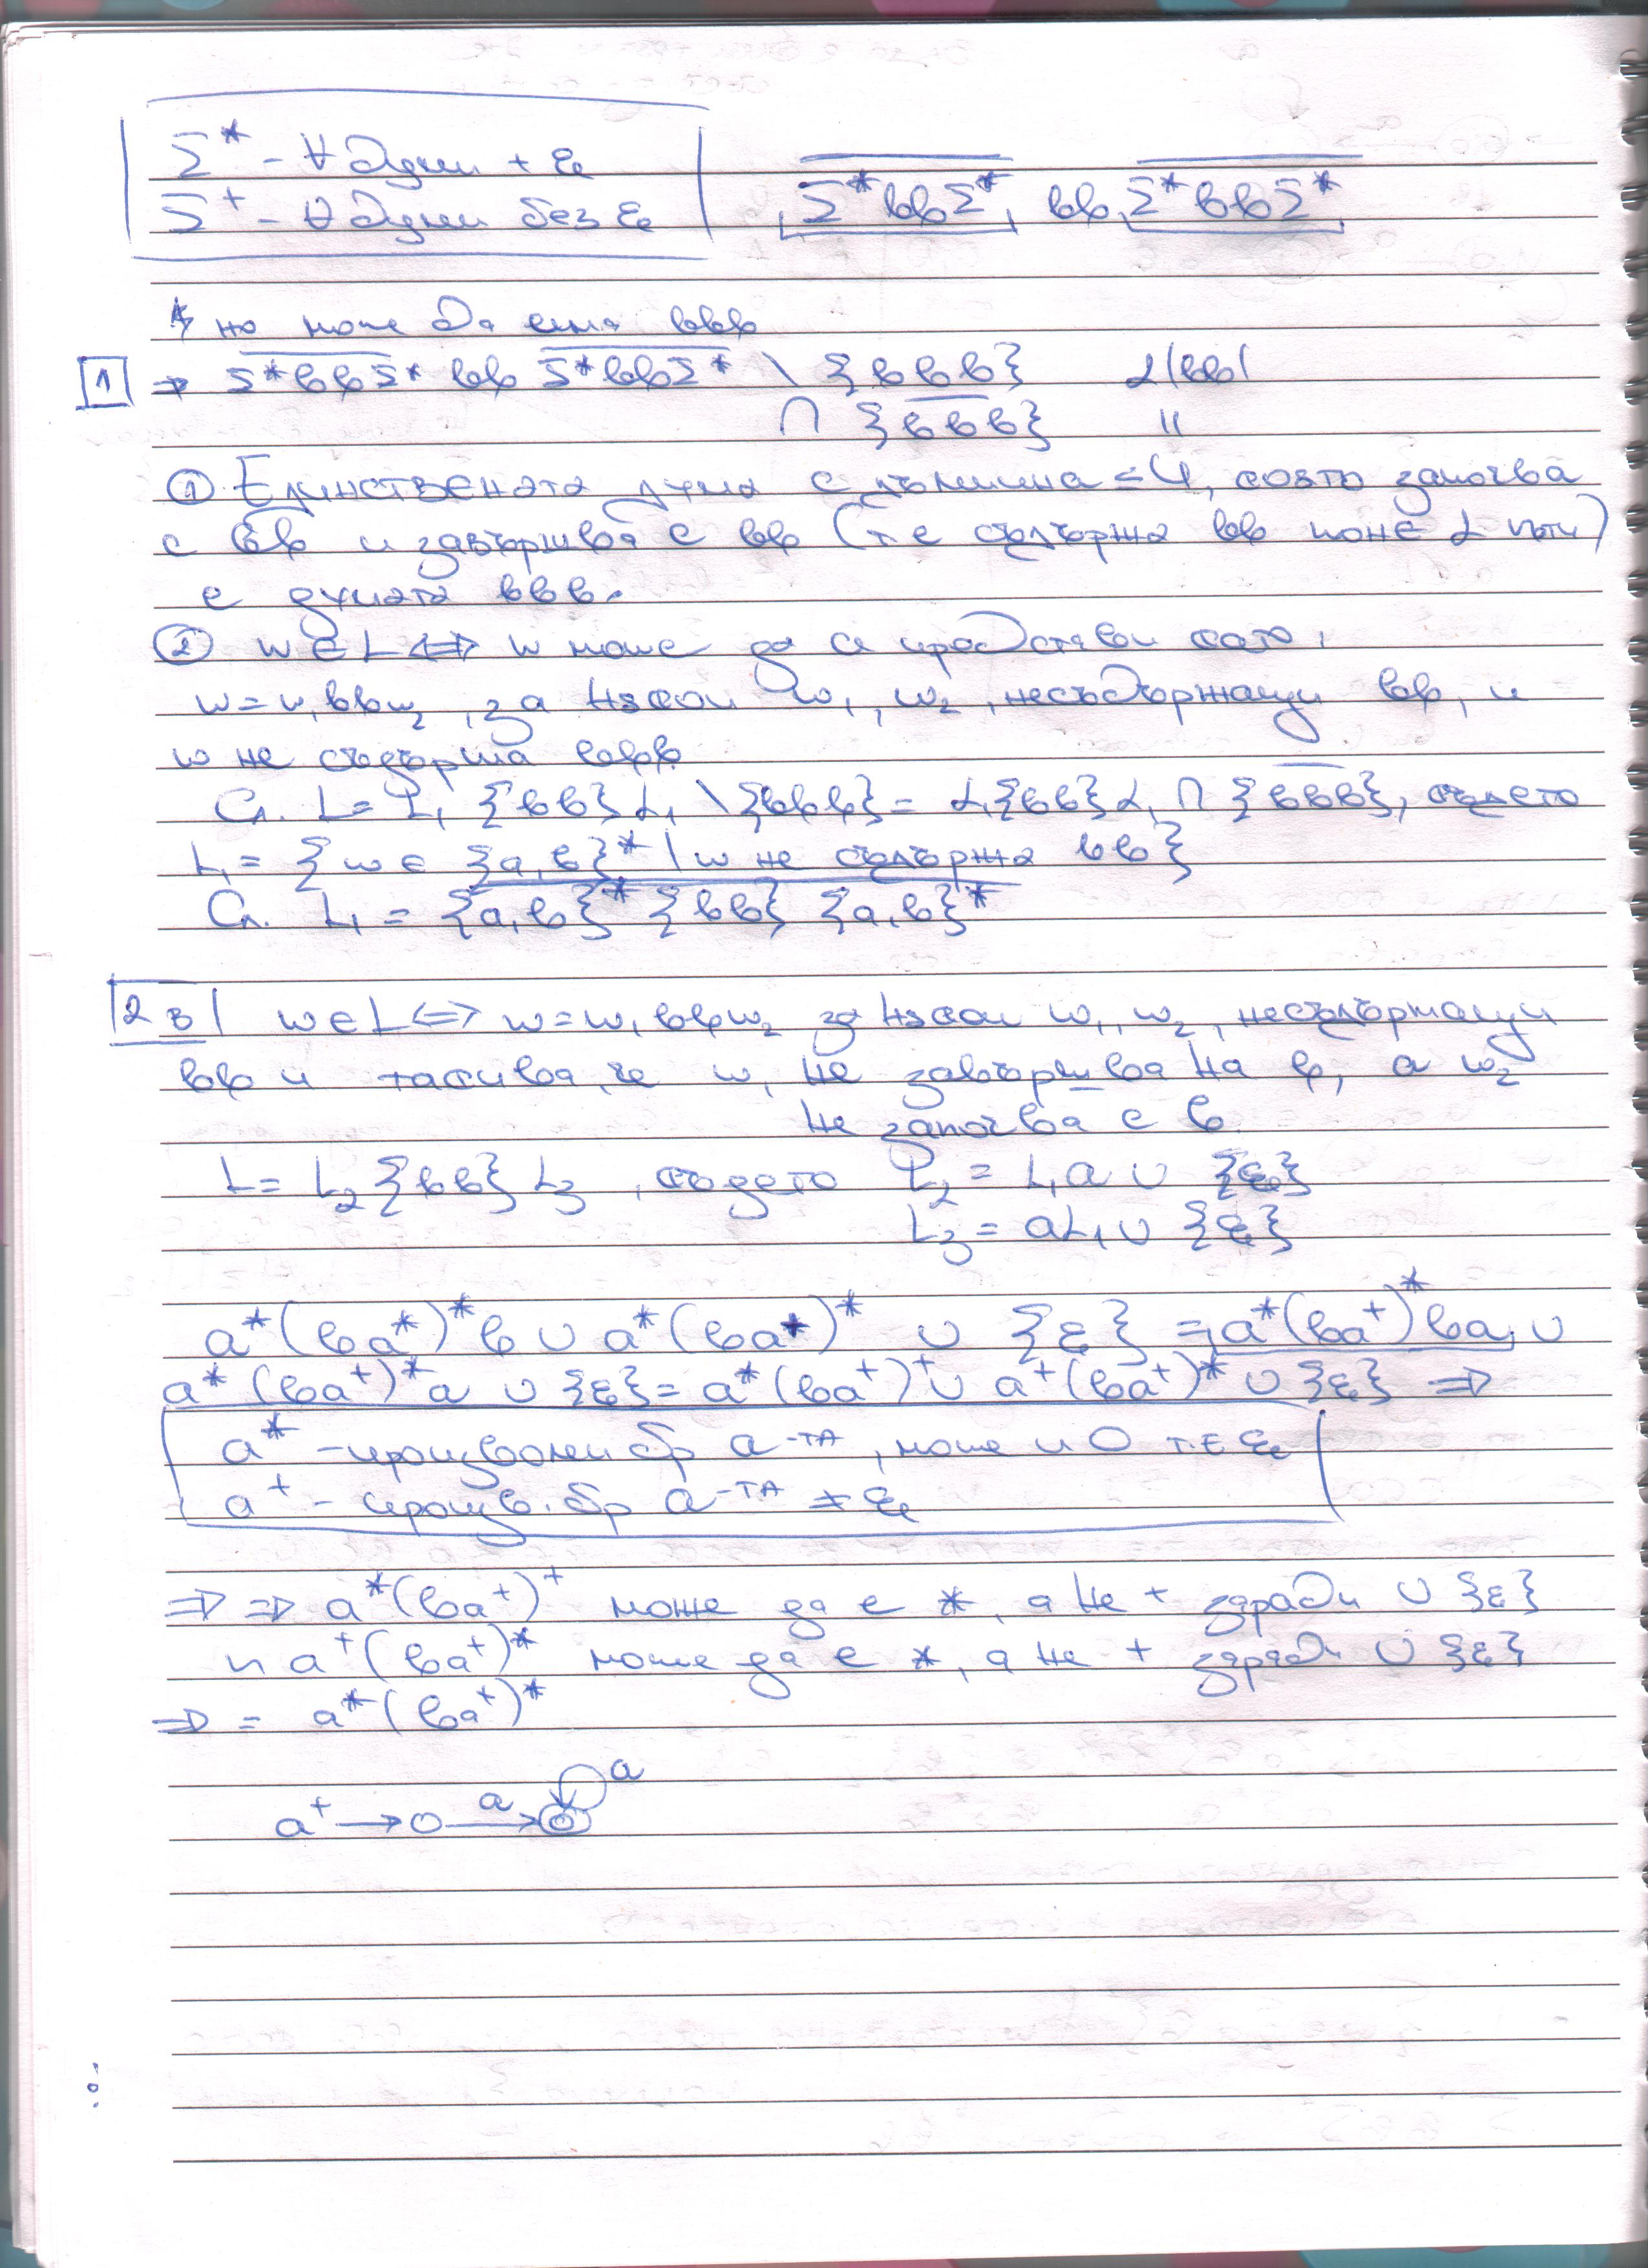 Σ* - ∀ думи + ε
Σ⁺ - ∀ думи без ε
Σ*bbΣ* bb Σ*bbΣ*
но може да има bbb
1 ⇒ Σ*bbΣ* bb Σ*bbΣ* \ {bbb} 2|bb|
∩ {bbb} "
① Единствената дума с дължина ≤ 4, която започва
с bb и завършва с bb (т е съдържа bb поне 2 пъти)
е думата bbb.
② w ∈ L ⟺ w може да се представи като
w = w₁bbw₂, за някои w₁, w₂, несъдържащи bb, и
w не съдържа bbb.
Сл. L = L₁ {bb} L₁ \ {bbb} = L₁{bb}L₁ ∩ {bbb}, където
L₁ = {w ∈ {a,b}* | w не съдържа bb}
Сл. L₁ = {a,b}* {bb} {a,b}*
2 в w ∈ L ⟺ w = w₁bbw₂ за някои w₁, w₂, несъдържащи
bb и такива, че w₁ не завършва на b, а w₂
не започва с b.
L = L₂{bb}L₃, където L₂ = L₁a ∪ {ε}
L₃ = aL₁ ∪ {ε}
a*(ba*)*b ∪ a*(ba*)* ∪ {ε} = a*(ba⁺)*ba ∪
a*(ba⁺)*a ∪ {ε} = a*(ba⁺)⁺ ∪ a⁺(ba⁺)* ∪ {ε} ⇒
a* - произволен бр a-та, може и 0 т.е ε
a⁺ - произв. бр a-та ≠ ε
⇒ ⇒ a*(ba⁺)⁺ може да е *, а не + заради ∪ {ε}
и a⁺(ba⁺)* може да е *, а не + заради ∪ {ε}
⇒ = a*(ba⁺)*
a
a⁺ → o a → o